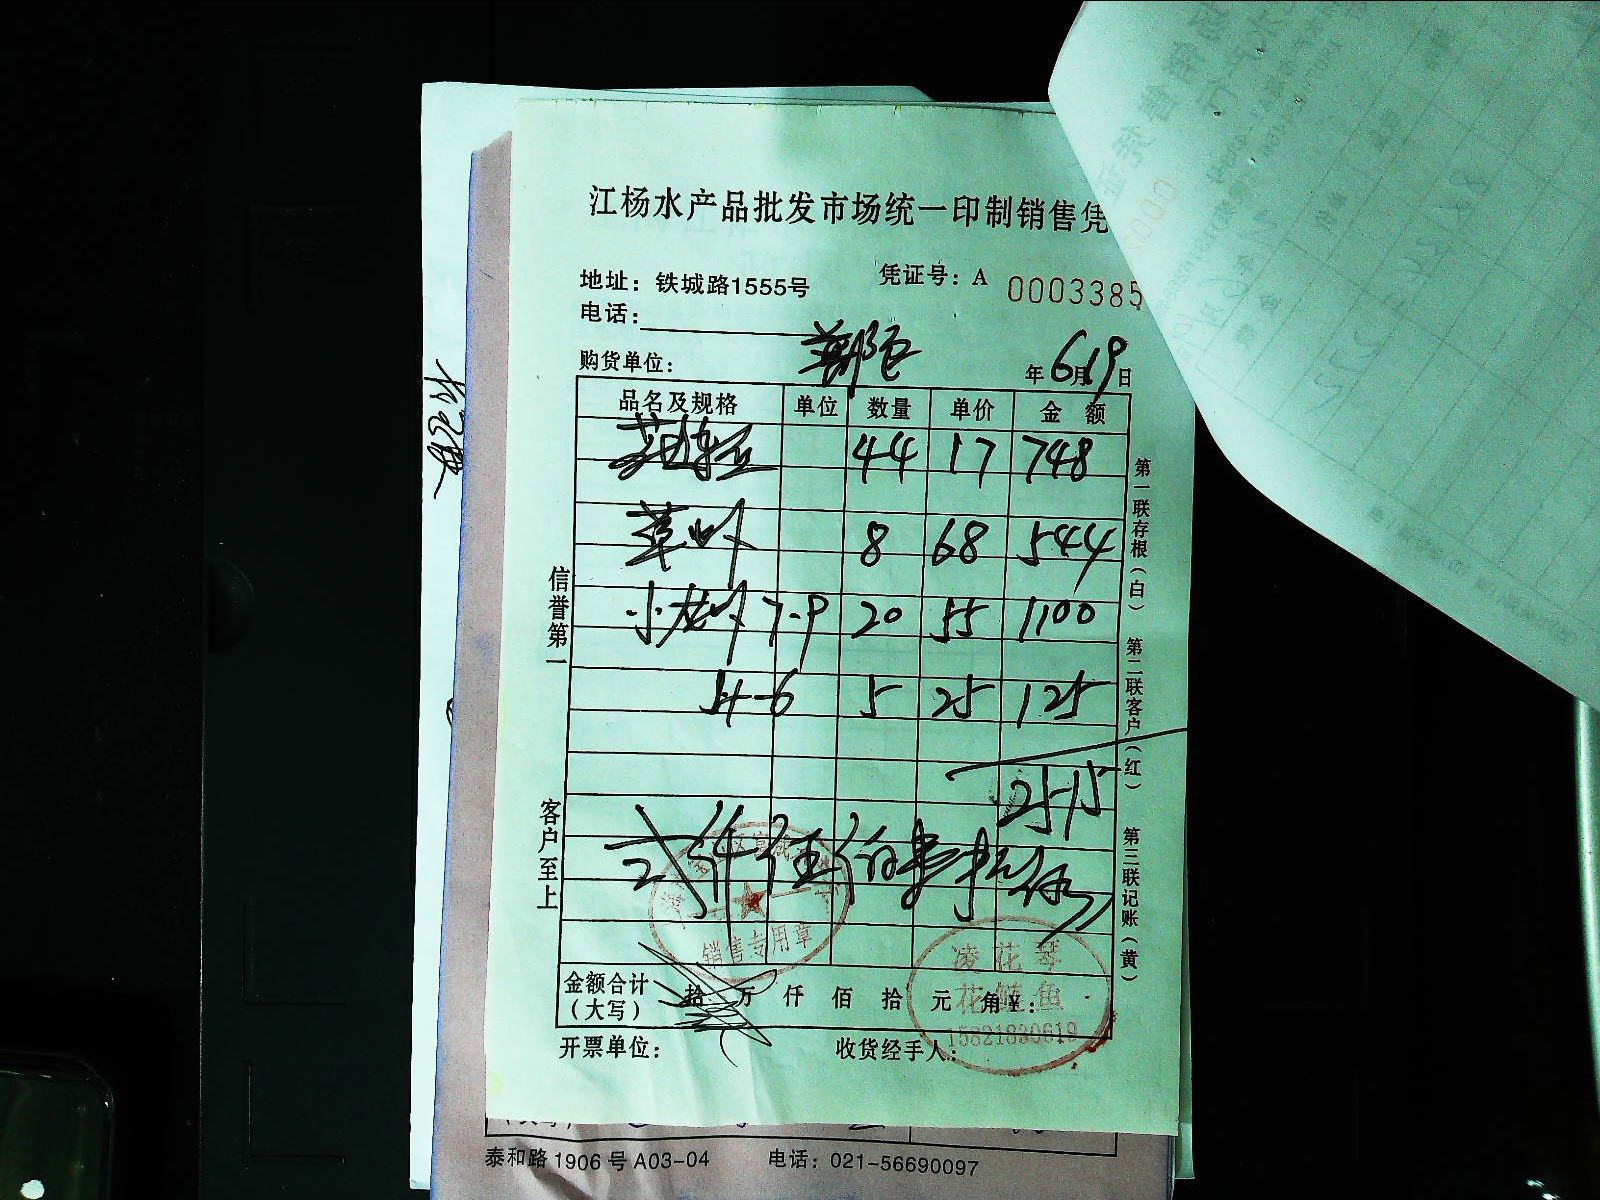 江杨水产品批发市场统一印制销售凭
地址：铁城路1555号
凭证号：A 0003385
电话：
购货单位：
年6月19日
品名及规格 单位 数量 单价 金额
44 17 748
草虾 8 68 544
小龙虾 7-9 20 55 1100
4-6 5 25 125
2515
贰仟伍佰壹拾伍
金额合计（大写） 拾 万 仟 佰 拾 元 角 ¥：
开票单位：
收货经手人：
信誉第一
客户至上
第一联存根（白） 第二联客户（红） 第三联记账（黄）
销售专用章
凌花琴
花鲢鱼
15821830619
泰和路1906号A03-04 电话：021-56690097